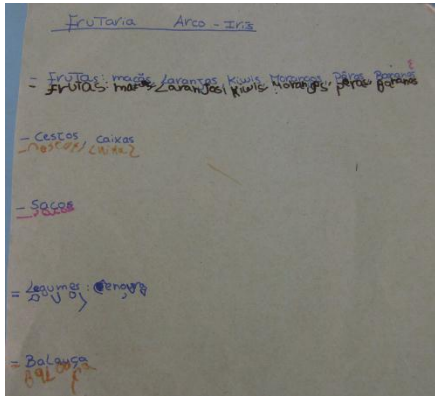 Frutaria Arco-Iris
= Frutas: maçãs Laranjas Kiwis Morangos Pêras Bananas
Frutas: maçãs Laranjas, Kiwis, Morangos, peras, Bananas
- Cestos, Caixas
- Sacos
= Legumes: Cenoura
= Balança